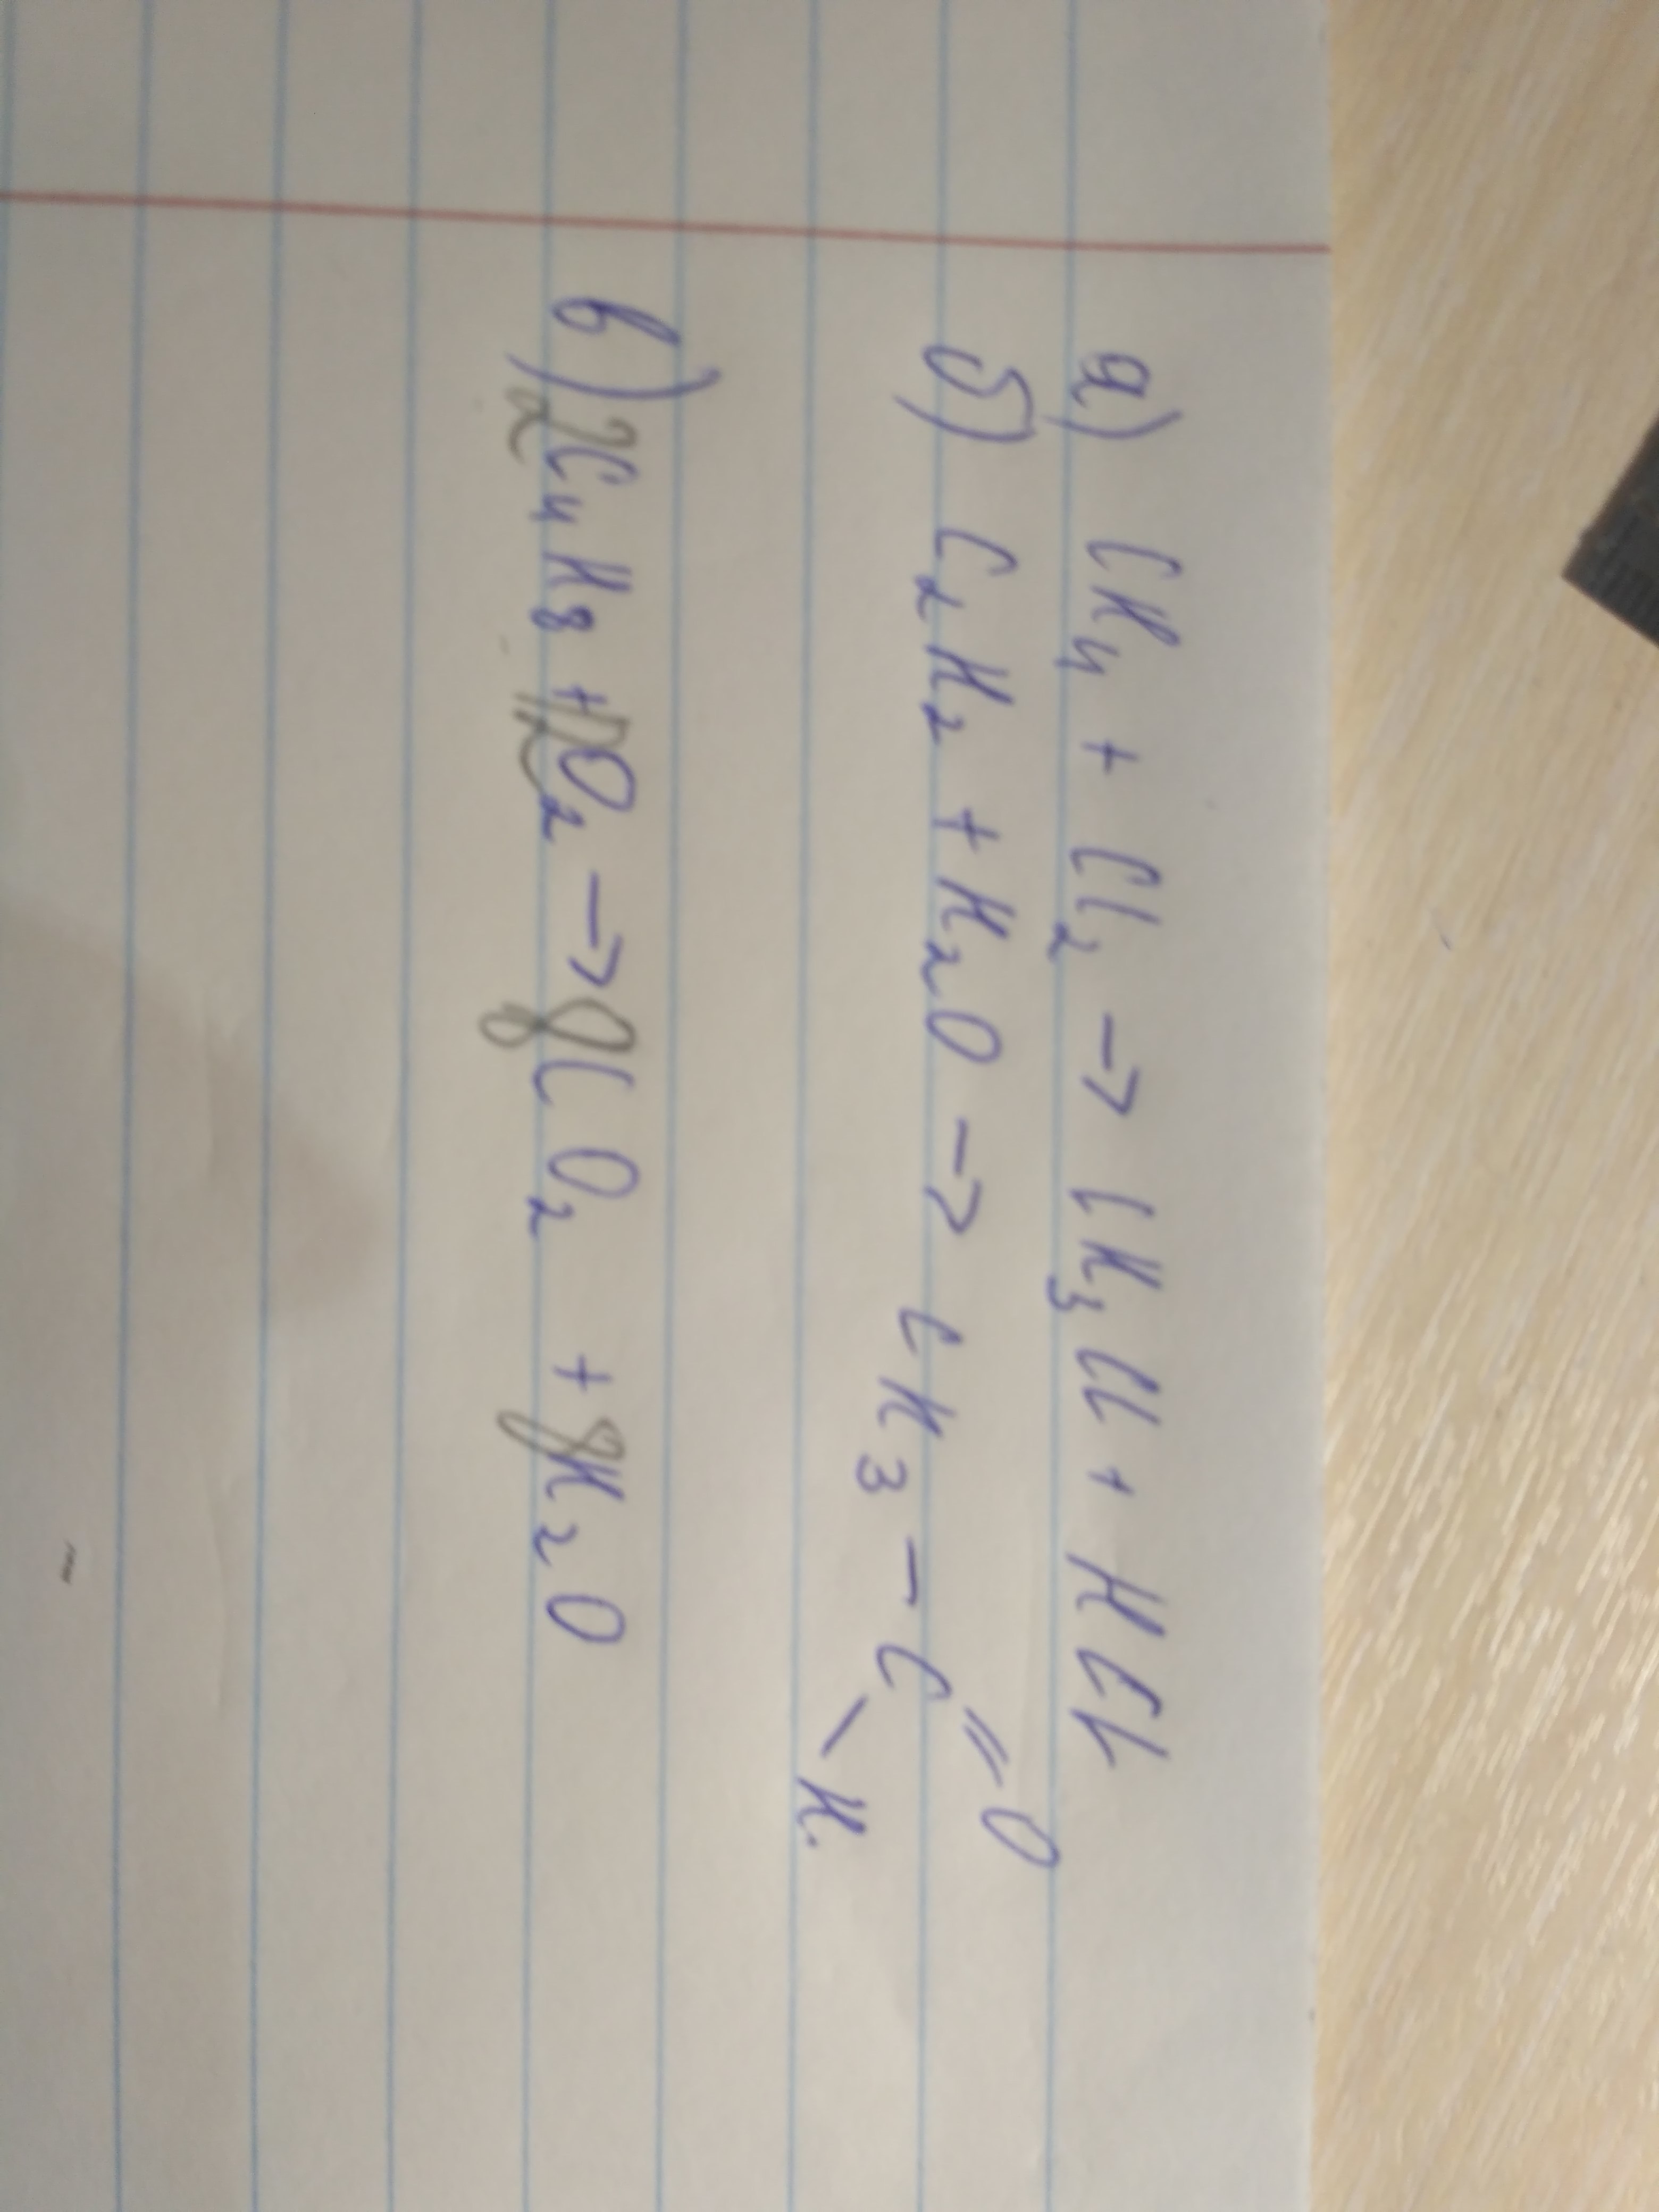 а) CH₄ + Cl₂ → CH₃Cl + HCl
б) C₂H₂ + H₂O → CH₃ – C =O – H.
в) 2C₄H₈ + 12O₂ → 8CO₂ + 8H₂O